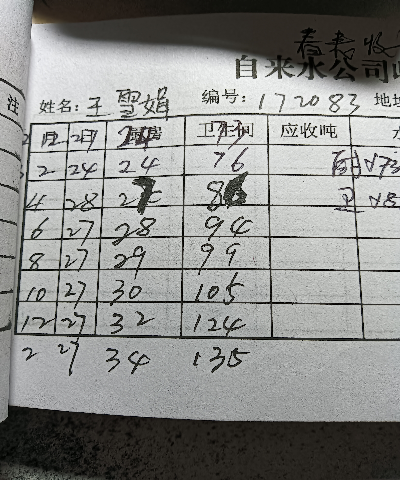 看表收
自来水公司
姓名: 王雪娟 编号: 172083 地址
注
厨房 卫生间 应收吨 水
2 24 24 76
4 28 27 86
6 27 28 94
8 27 29 99
10 27 30 105
12 27 32 124
2 27 34 135